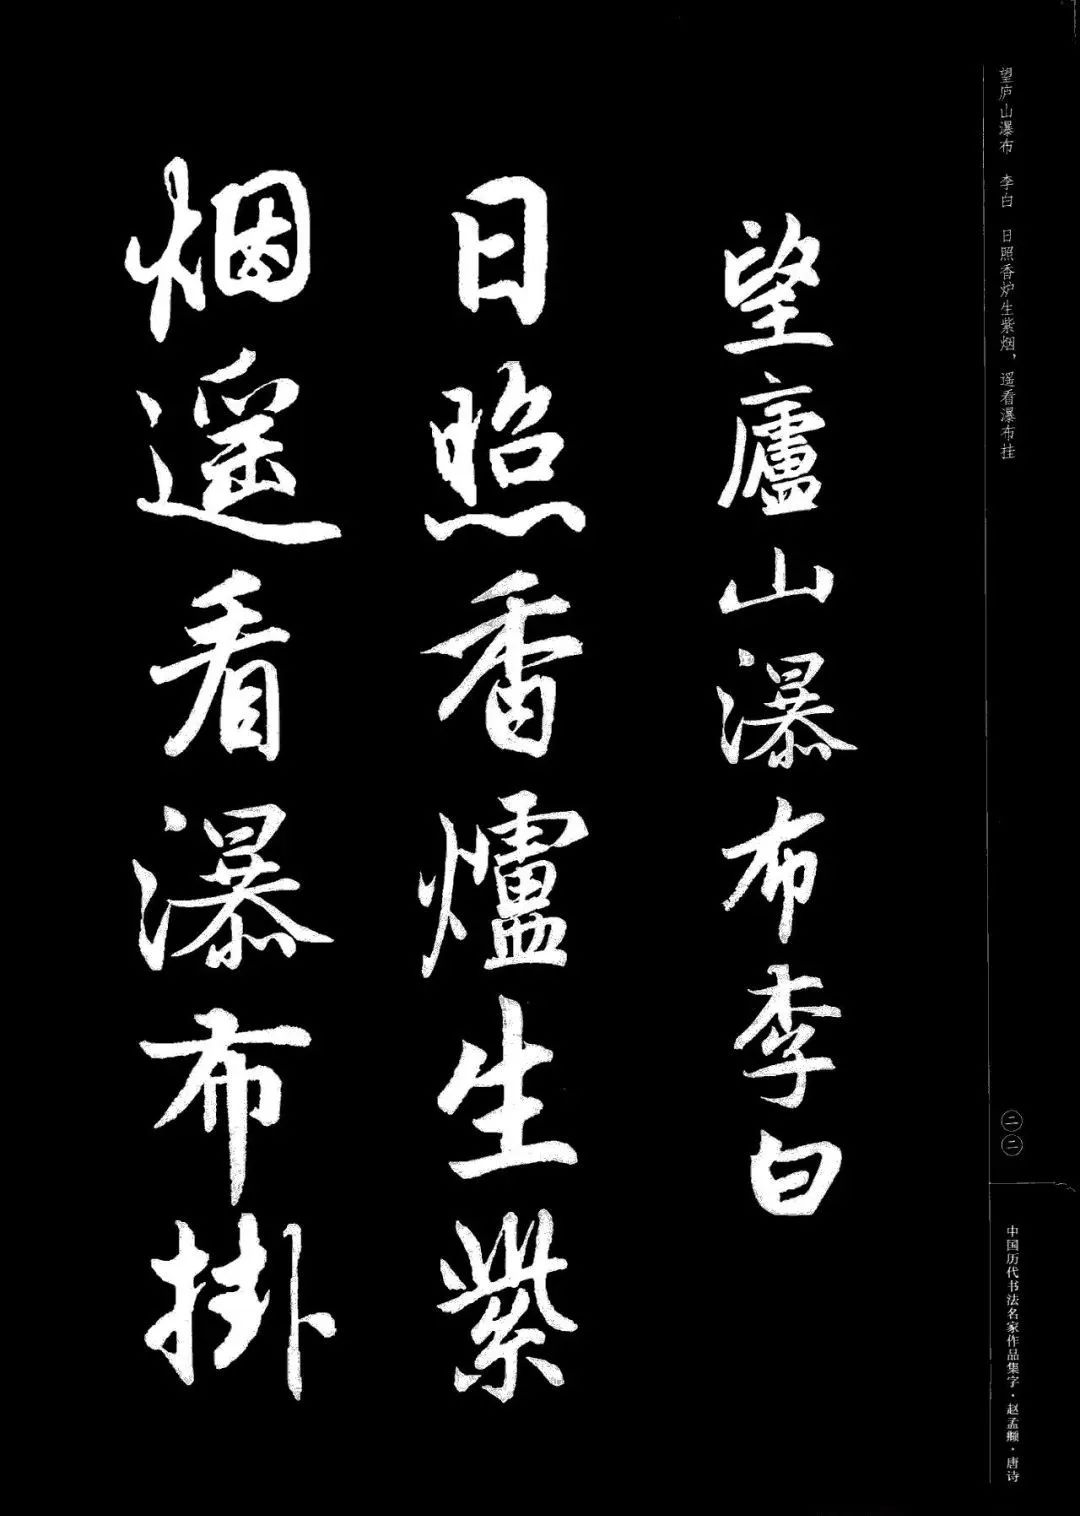 望庐山瀑布　李白　日照香炉生紫烟，遥看瀑布挂
望廬山瀑布李白
日照香爐生紫
烟遥看瀑布掛
二二
中国历代书法名家作品集字·赵孟頫·唐诗